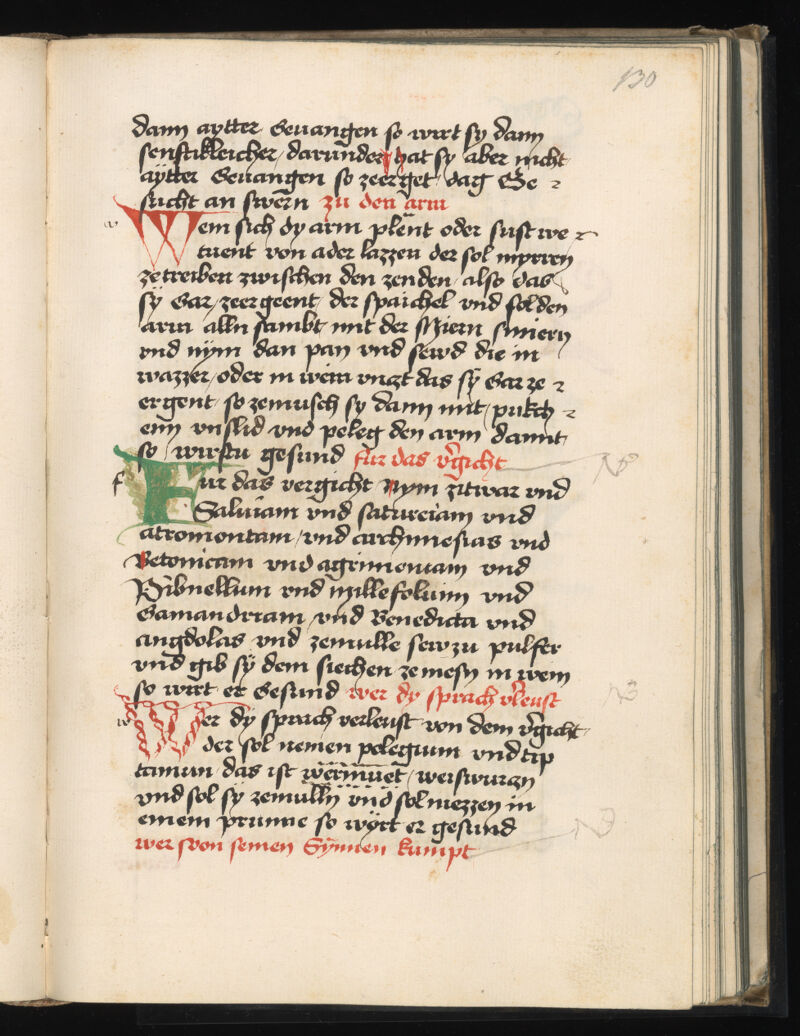 130
dann aytter Gevangen so wirt sy dann
senftikleicher, darunder hat sy aber nicht
aytter Gevangen so zeerget, das Ge
sücht an swern zu den arm
Wem sich dy arm plent oder sust we
tuent von ader lazzen der sol myrren
zetreiben zwischen den zenden also das
sy Gar, zeergeent, der spaichel vnd sol den
arm alln sambt mit der smiern
vnd nym dan pan vnd sewd die in
wazzer, oder in wein vnczt das sy Gar ze
ergent, so zemisch sy dann mit, pukch
enn vnslid vnd peleg den arm damit
so, wirstu gesund für das v'gicht
f
Fur das vergicht Nym zitwar vnd
Salviam vnd satureiam vnd
atromontam, vnd archmesias vnd
Betonicam vnd agrimoniam vnd
Pibnellum vnd millefolium vnd
Gamandriam, vnd Benedicta vnd
angdolas vnd zemulle sew zu pulfer
vnd gib sy dem siechen zemesn in wein
so wirt er Gesund wer dy sprach v'leust
w
Wer dy sprach verleust von dem v'gicht
der sol nemen pelegium vnd trp
tamum, das ist wermuet, weiswurczn
vnd sol sy zemulln vnd sol niezzen in
einem prunne so wyrt er gesund
wer von seinen Synnen kumpt